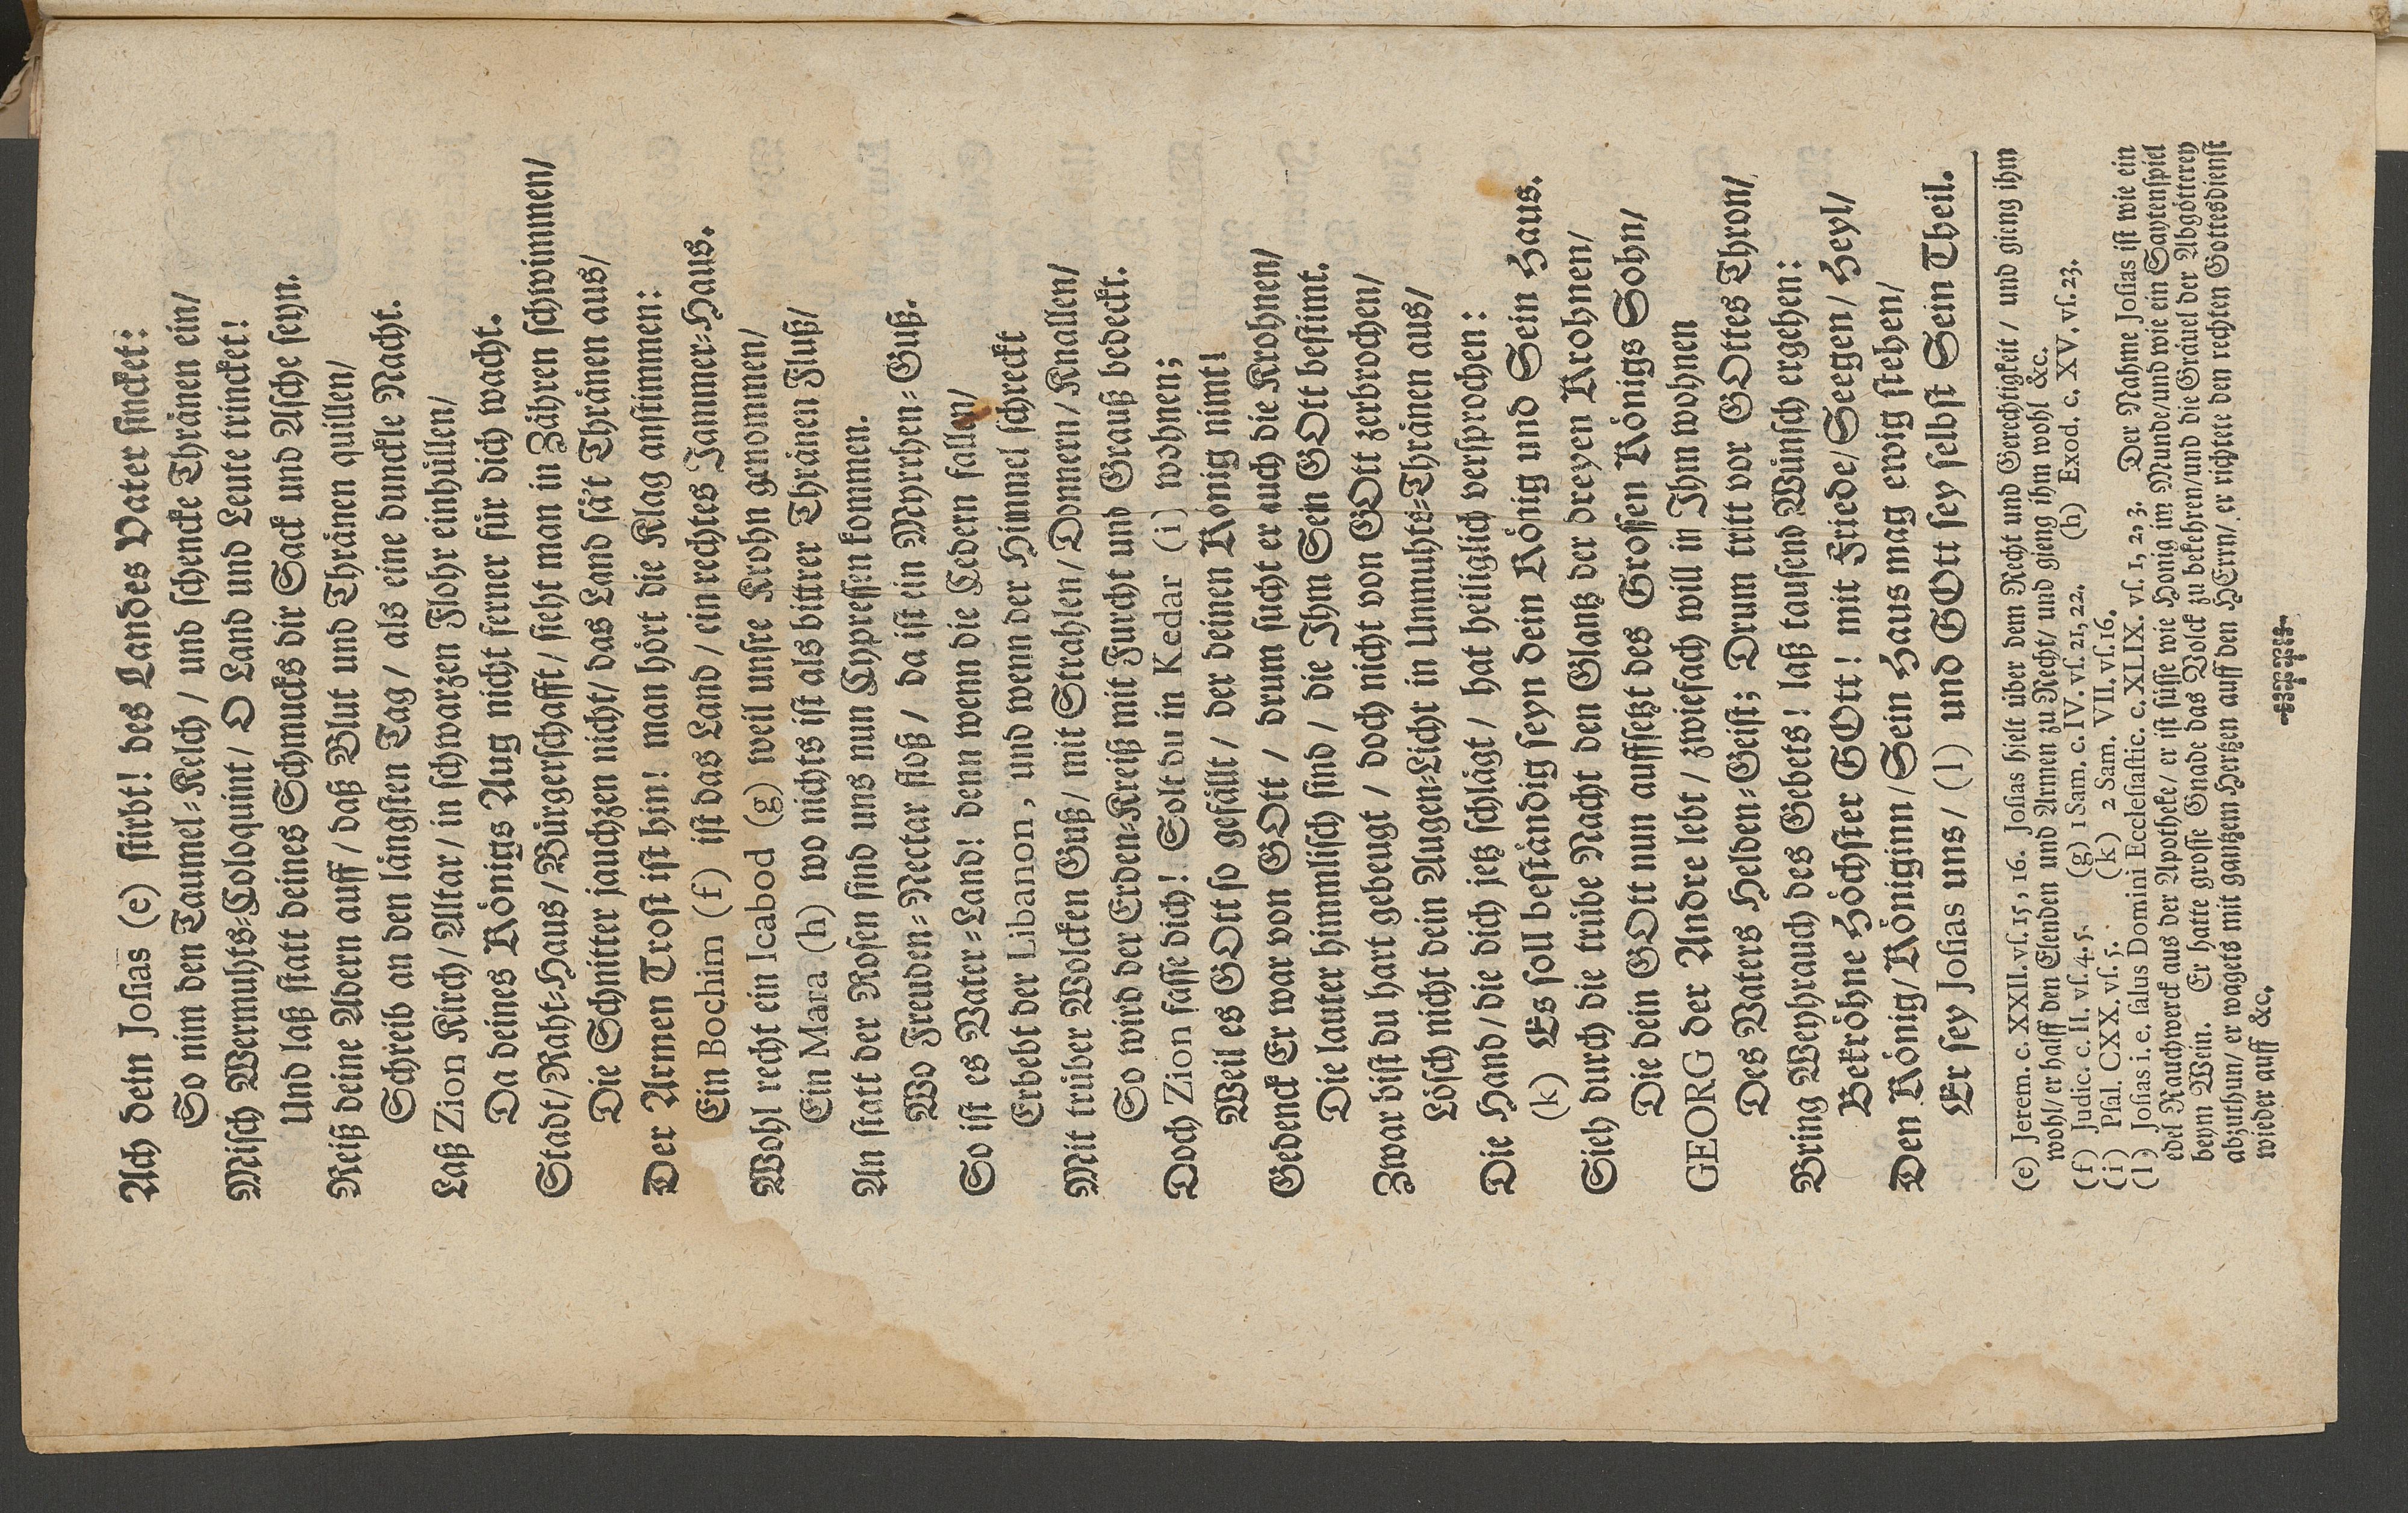 Ach dein Josias (e) stirbt! des Landes Vater sincket:
So nim den Taumel-Kelch / und schencke Thränen ein/
Misch Wermuhts-Coloquint / O Land und Leute trincket!
Und laß statt deines Schmucks dir Sack und Asche seyn.
Reiß deine Adern auff / daß Blut und Thränen quillen/
Schreib an den längsten Tag / als eine dunckle Nacht.
Laß Zion Kirch / Altar / in schwarzen Flohr einhüllen/
Da deines Königs Aug nicht ferner für dich wacht.
Stadt/Raht-Haus/Bürgerschafft/ sieht man in Zähren schwimmen/
Die Schnitter jauchzen nicht/ das Land sä't Thränen aus/
Der Armen Trost ist hin! man hört die Klag anstimmen:
Ein Bochim (f) ist das Land / ein rechtes Jammer-Haus.
Wohl recht ein Icabod (g) weil unsre Krohn genommen/
Ein Mara (h) wo nichts ist als bittrer Thränen Fluß/
An statt der Rosen sind uns nun Cypressen kommen.
Wo Freuden-Nectar floß / da ist ein Myrrhen-Guß.
So ist es Vater-Land! denn wenn die Cedern fallen/
Erbebt der Libanon, und wenn der Himmel schreckt
Mit trüber Wolcken Guß/ mit Strahlen/ Donnern/ Knallen/
So wird der Erden-Kreiß mit Furcht und Grauß bedeckt.
Doch Zion fasse dich! Solt du in Kedar (i) wohnen;
Weil es GOtt so gefällt / der deinen König nimt!
Gedenck Er war von GOtt / drum sucht er auch die Krohnen/
Die lauter himmlisch sind / die Ihm Sein GOtt bestimt.
Zwar bist du hart gebeugt / doch nicht von GOtt zerbrochen/
Lösch nicht dein Augen-Licht in Unmuhts-Thränen aus/
Die Hand / die dich jetz schlägt / hat heiliglich versprochen:
(k) Es soll beständig seyn dein König und Sein Haus.
Sieh durch die trübe Nacht den Glantz der dreyen Krohnen/
Die dein GOtt nun auffsetzt des Grossen Königs Sohn/
GEORG der Andre lebt / zwiefach will in Ihm wohnen
Des Vaters Helden-Geist; Drum tritt vor GOttes Thron/
Bring Weyhrauch des Gebets! laß tausend Wünsch ergehen:
Bekröhne Höchster GOtt! mit Friede/ Seegen/ Heyl/
Den König/ Königinn/ Sein Haus mag ewig stehen/
Er sey Josias uns/ (l) und GOtt sey selbst Sein Theil.
(e) Jerem. c. XXII. vs. 15, 16. Josias hielt über dem Recht und Gerechtigkeit / und gieng ihm
wohl/ er halff den Elenden und Armen zu Recht/ und gieng ihm wohl &c.
(f) Judic. c. II. vs. 4. 5. (g) 1 Sam. c. IV. vs. 21, 22. (h) Exod. c. XV. vs. 23.
(i) Psal. CXX. vs. 5. (k) 2 Sam. VII. vs. 16.
(l) Josias i. e. salus Domini Ecclesiastic. c. XLIX. vs. 1, 2, 3. Der Nahme Josias ist wie ein
edel Rauchwerck aus der Apotheke/ er ist süsse wie Honig im Munde/und wie ein Saytenspiel
beym Wein. Er hatte grosse Gnade das Volck zu bekehren/und die Gräuel der Abgötterey
abzuthun/ er wagets mit gantzen Hertzen auff den HErrn/ er richtete den rechten Gottesdienst
wieder auff &c.